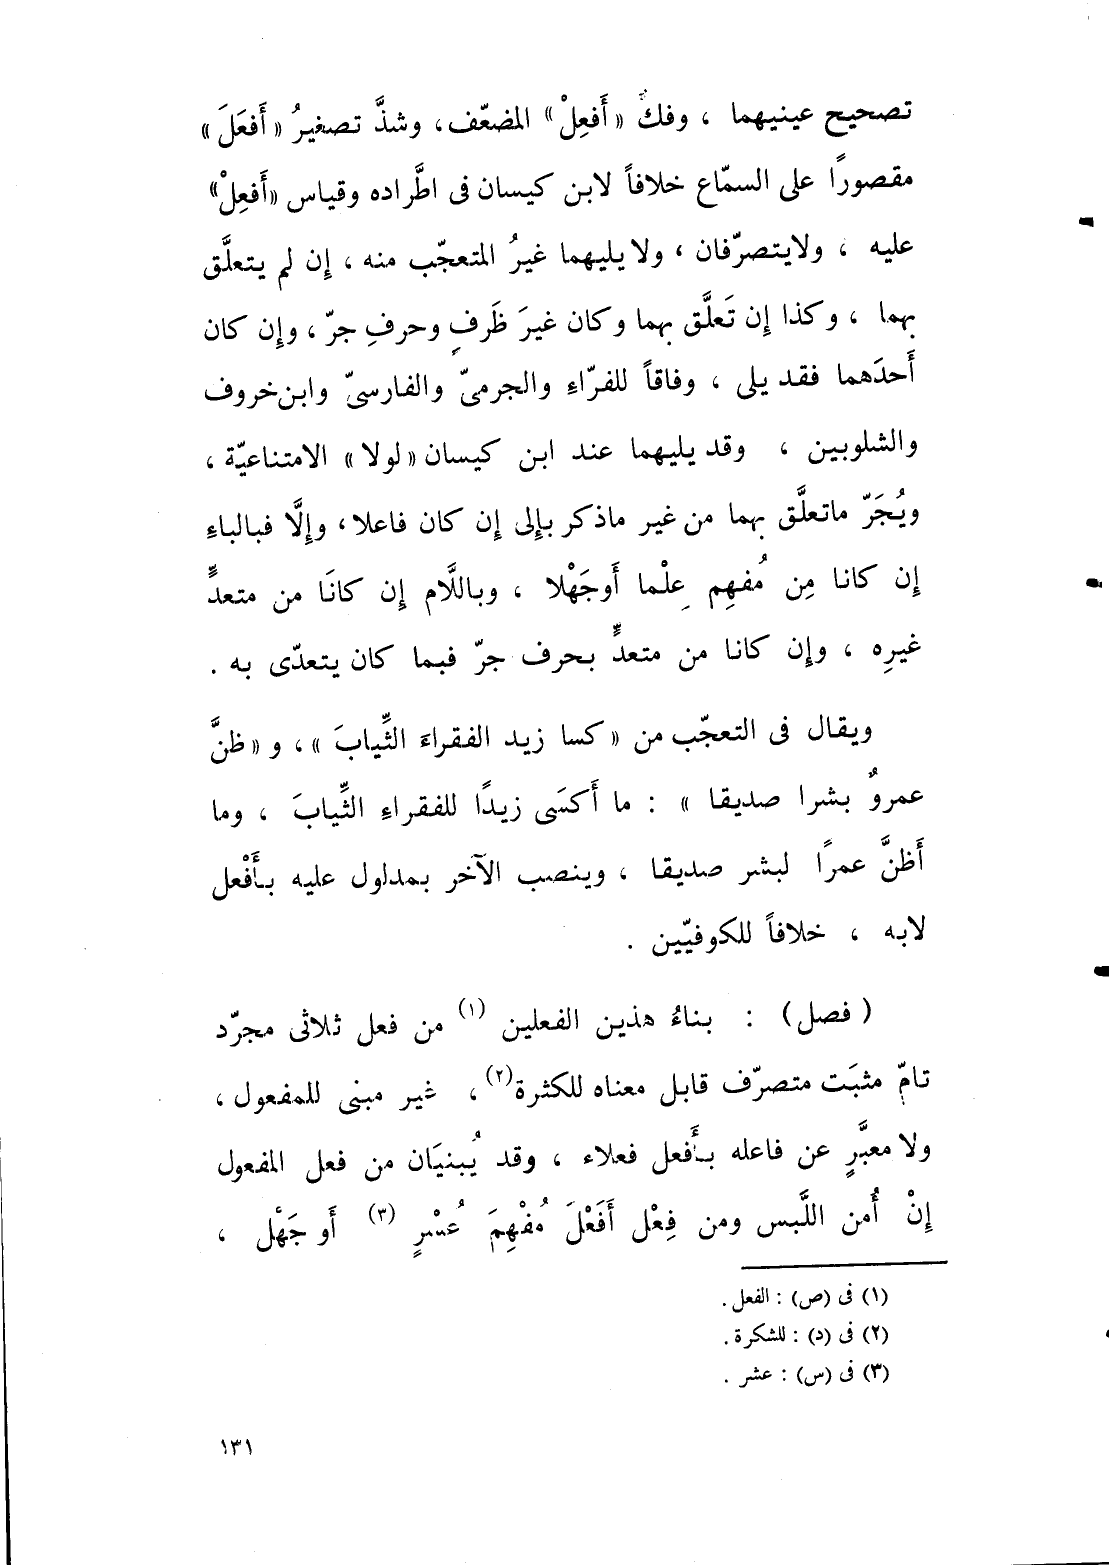 تصحيح عينيهما ، وفكُّ «أَفعِلْ» المضعّف، وشذَّ تصغيرُ «أَفعَلَ»
مقصورًا على السمّاع خلافاً لابن كيسان فى اطَّراده وقياس «أَفعِلْ»
عليه ، ولايتصرّفان ، ولا يليهما غيرُ المتعجّب منه ، إن لم يتعلَّق
بهما ، وكذا إن تَعلَّق بهما وكان غيرَ ظَرفٍ وحرفِ جرّ ، وإن كان
أَحدَهما فقد يلى ، وفاقاً للفرّاءِ والجرمىّ والفارسىّ وابن خروف
والشلوبين ، وقد يليهما عند ابن كيسان «لولا» الامتناعيّة ،
ويُجَرّ ماتعلَّق بهما من غير ماذكر بإلى إن كان فاعلا ، وإلَّا فبالباءِ
إن كانا مِن مُفهِم عِلْما أَوجَهْلا ، وباللَّام إن كانَا من متعدٍّ
غيرِه ، وإن كانا من متعدٍّ بحرف جرّ فبما كان يتعدّى به .
ويقال فى التعجّب من «كسا زيد الفقراءَ الثِّيابَ» ، و «ظنَّ
عمروٌ بشرا صديقا » : ما أَكسَى زيدًا للفقراءِ الثِّيابَ ، وما
أَظنَّ عمرًا لبشر صديقا ، وينصب الآخر بمدلول عليه بأَفْعل
لابه ، خلافاً للكوفيّين .
( فصل ) : بناءُ هذين الفعلين (١) من فعل ثلاثى مجرّد
تامّ مثبَت متصرّف قابل معناه للكثرة(٢) ، غير مبنى للمفعول ،
ولا معبَّرٍ عن فاعله بأَفعل فعلاء ، وقد يُبنيَان من فعل المفعول
إنْ أُمن اللَّبس ومن فِعْل أَفَعْلَ مُفْهِمَ عُسْرٍ (٣) أَو جَهْل ،
(١) فى (ص) : الفعل .
(٢) فى (د) : للشكرة .
(٣) فى (س) : عشر .
١٣١